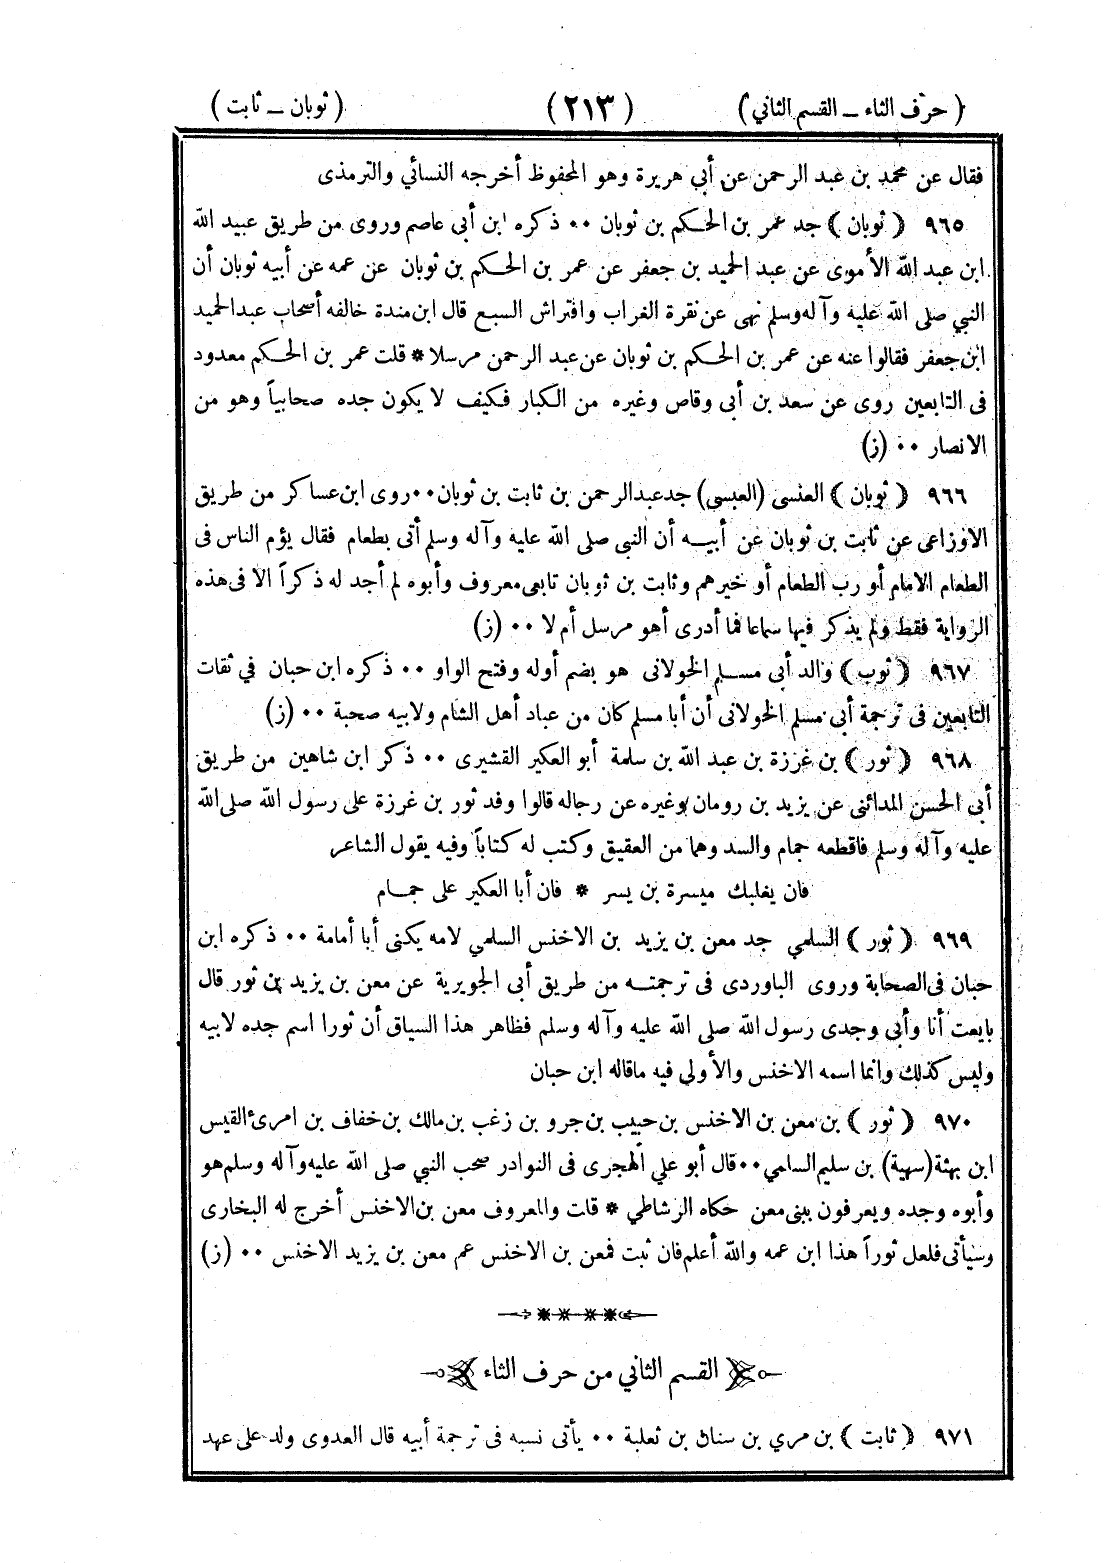 ( حرف الثاء ــ القسم الثاني ) ( ٢١٣ ) ( ثوبان ــ ثابت )
فقال عن محمد بن عبد الرحمن عن أبي هريرة وهو المحفوظ أخرجه النسائي والترمذى
٩٦٥ ( ثوبان ) جد عمر بن الحكم بن ثوبان ٠٠ ذكره ابن أبي عاصم وروى من طريق عبيد الله
ابن عبد الله الأموى عن عبد الحميد بن جعفر عن عمر بن الحكم بن ثوبان عن عمه عن أبيه ثوبان أن
النبي صلى الله عليه وآله وسلم نهى عن نقرة الغراب وافتراش السبع قال ابن مندة خالفه أصحاب عبد الحميد
ابن جعفر فقالوا عنه عن عمر بن الحكم بن ثوبان عن عبد الرحمن مرسلا * قلت عمر بن الحكم معدود
فى التابعين روى عن سعد بن أبى وقاص وغيره من الكبار فكيف لا يكون جده صحابياً وهو من
الانصار ٠٠ (ز)
٩٦٦ ( ثوبان ) العنسى (العبسي) جد عبد الرحمن بن ثابت بن ثوبان ٠٠ روى ابن عساكر من طريق
الاوزاعى عن ثابت بن ثوبان عن أبيه أن النبى صلى الله عليه وآله وسلم أتى بطعام فقال يؤم الناس فى
الطعام الامام أو رب الطعام أو خيرهم وثابت بن ثوبان تابعى معروف وأبوه لم أجد له ذكراً الا فى هذه
الرواية فقط ولم يذكر فيها سماعا فما أدرى أهو مرسل أم لا ٠٠ (ز)
٩٦٧ ( ثوب ) والد أبى مسلم الخولانى هو بضم أوله وفتح الواو ٠٠ ذكره ابن حبان في ثقات
التابعين فى ترجمة أبي مسلم الخولانى أن أبا مسلم كان من عباد أهل الشام ولابيه صحبة ٠٠ (ز)
٩٦٨ ( ثور ) بن غرزة بن عبد الله بن سلمة أبو العكير القشيرى ٠٠ ذكر ابن شاهين من طريق
أبى الحسن المدائنى عن يزيد بن رومان وغيره عن رجاله قالوا وفد ثور بن غرزة على رسول الله صلى الله
عليه وآله وسلم فاقطعه حمام والسد وهما من العقيق وكتب له كتاباً وفيه يقول الشاعر
فان يغلبك ميسرة بن يسر * فان أبا العكير على حمام
٩٦٩ ( ثور ) السلمي جد معن بن يزيد بن الاخنس السلمي لامه يكنى أبا أمامة ٠٠ ذكره ابن
حبان فى الصحابة وروى الباوردى فى ترجمته من طريق أبى الجويرية عن معن بن يزيد بن ثور قال
بايعت أنا وأبى وجدى رسول الله صلى الله عليه وآله وسلم فظاهر هذا السياق أن ثورا اسم جده لابيه
وليس كذلك وانما اسمه الاخنس والأولى فيه ماقاله ابن حبان
٩٧٠ ( ثور ) بن معن بن الاخنس بن حبيب بن جرو بن زغب بن مالك بن خفاف بن امرئ القيس
ابن بهثة (سهية) بن سليم السلمي ٠٠ قال أبو علي الهجرى فى النوادر صحب النبي صلى الله عليه وآله وسلم هو
وأبوه وجده ويعرفون ببنى معن حكاه الرشاطي * قلت والمعروف معن بن الاخنس أخرج له البخارى
وسيأتى فلعل ثوراً هذا ابن عمه والله أعلم فان ثبت فمعن بن الاخنس عم معن بن يزيد الاخنس ٠٠ (ز)
القسم الثاني من حرف الثاء
٩٧١ ( ثابت ) بن مري بن سنان بن ثعلبة ٠٠ يأتى نسبه فى ترجمة أبيه قال العدوى ولد على عهد